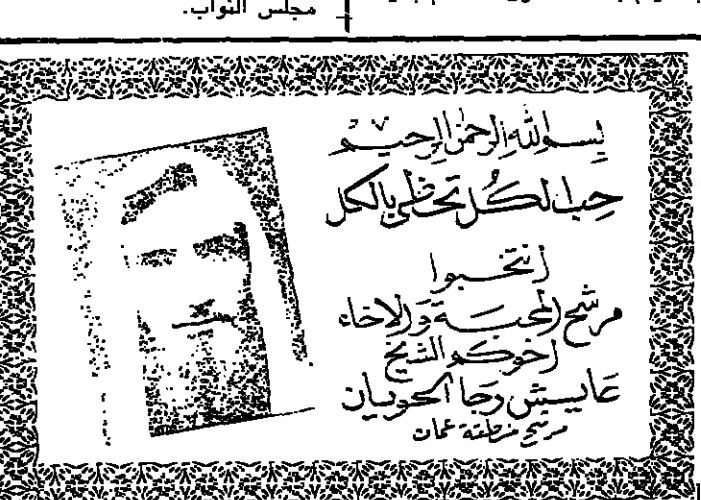 مجلس النواب.
بسم الله الرحمن الرحيم
حب الكل تحظى بالكل
انتخبوا
مرشح المحبة والاخاء
اخوكم الشيخ
عايش رجا الحويان
مرشح منطقة عمان